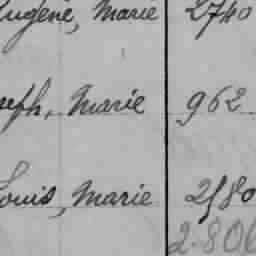 Eugène, Marie 2740
seph, Marie 962
Louis, Marie 2580
2.806